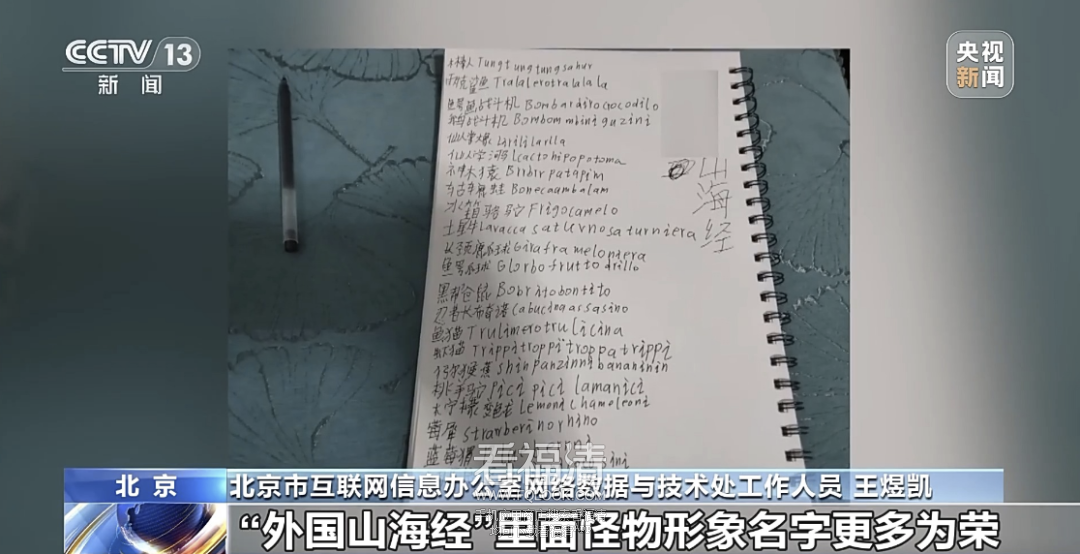 CCTV 13
新闻
央视
新闻
木棒人 Tungtungtungsahur
耐克鲨鱼 Tralalerotralalala
鳄鱼战斗机 Bombardirocrocodilo
鹅战斗机 Bombombiniguzini
仙人掌大象 Lirililarila
仙人掌河马 Icactohipopotoma
Brrbrrpatapim
青蛙 Bonecaambalam
冰箱骆驼 Frigocamelo
土星牛 Lavaccasaturnosaturniera
长颈鹿西瓜 Girafamelontera
鳄鱼西瓜 Glorbofruttodrillo
黑帮仓鼠 Bobritobontito
忍者卡布奇诺 Cabucinaassasino
鱼猫 Trulimerotrulicina
虾猫 Trippitroppitroppatrippi
shinpanzinnibananinin
骆驼 Pici pici lamanici
大柠檬变色龙 Lemonichameleoni
莓犀 Strawberinorhino
蓝莓
山海经
看福清
北京
北京市互联网信息办公室网络数据与技术处工作人员 王煜凯
“外国山海经”里面怪物形象名字更多为荣